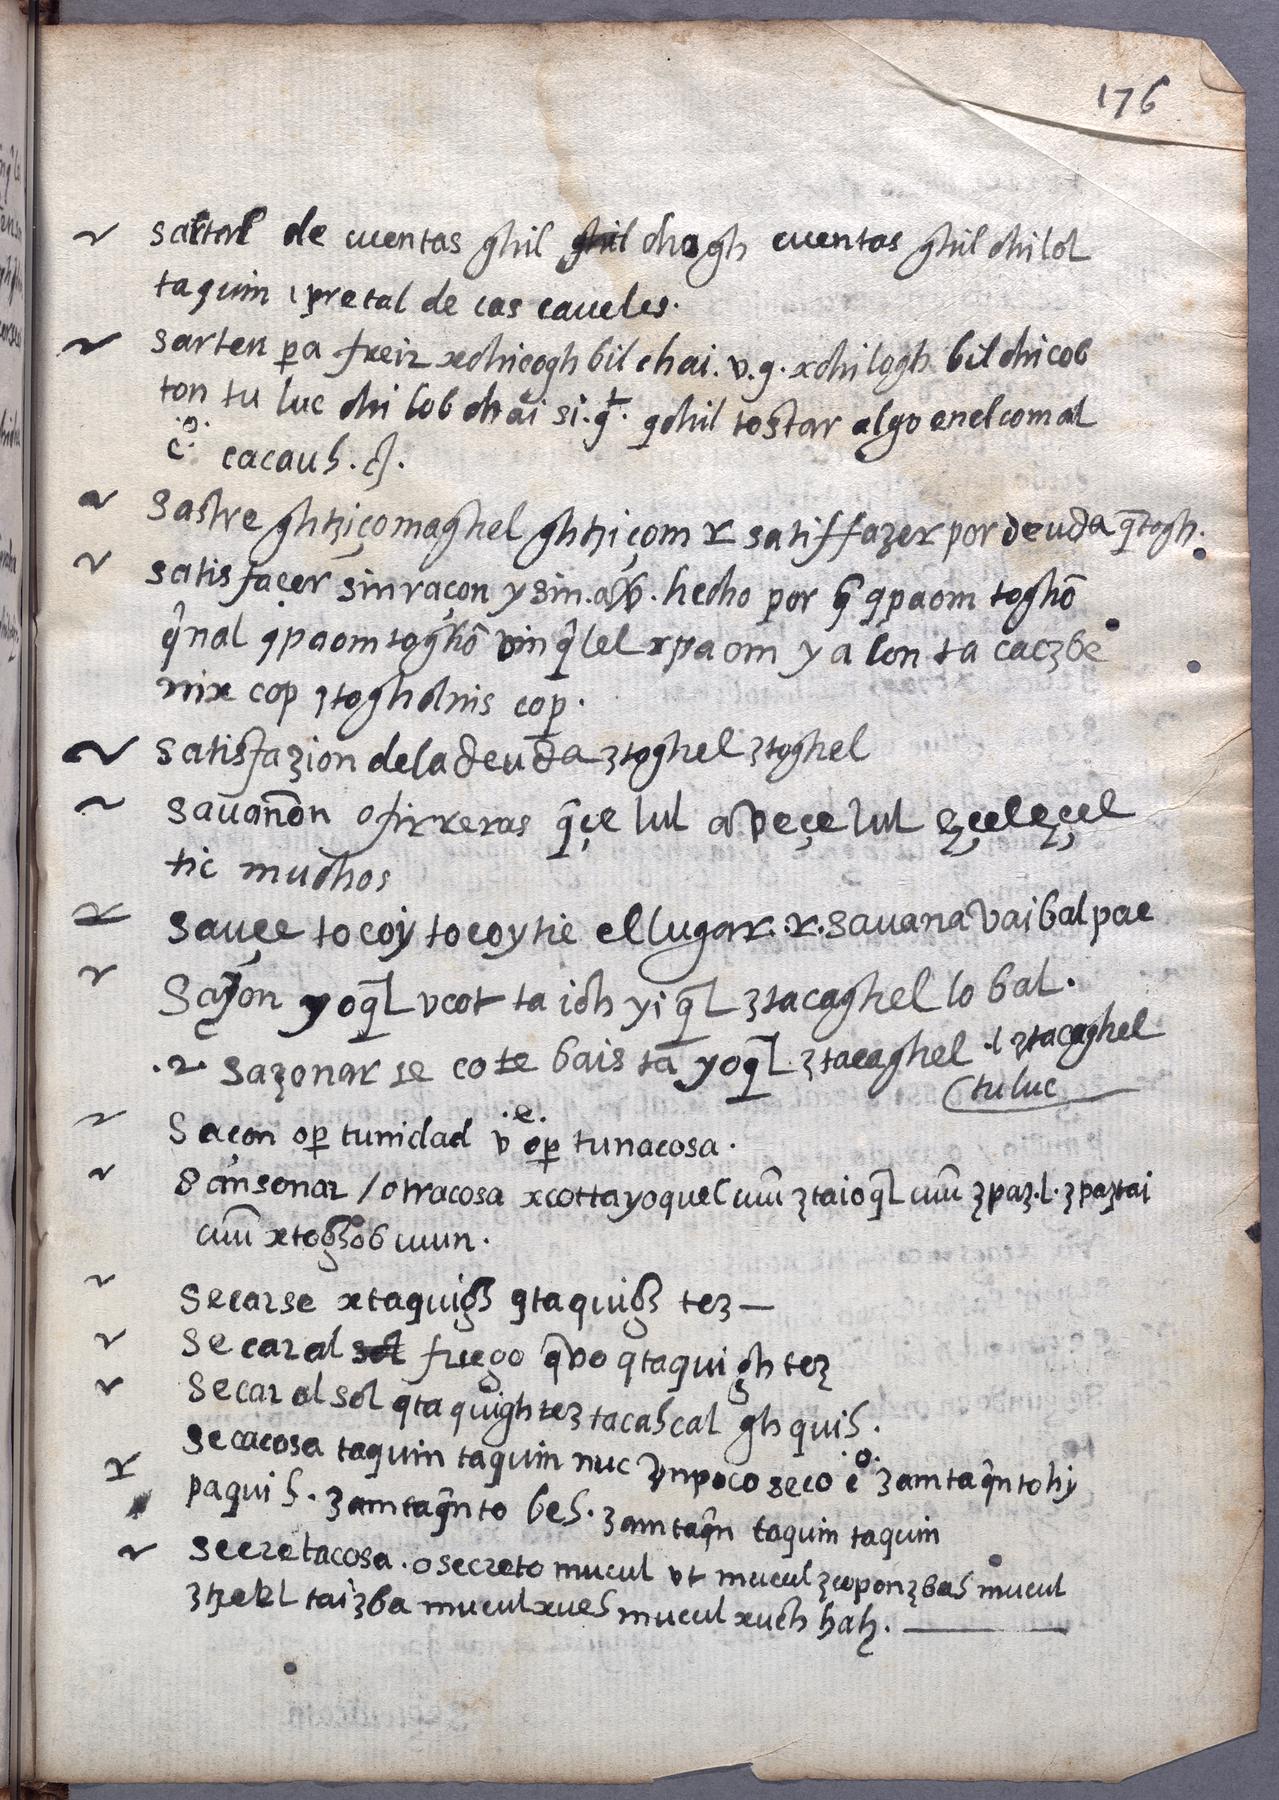 176
sartal de cuentas ghil chagh cuentas ghil chilol
taquim ɩ pretal de cascaueles.
sarten pa freir xchicogh bil chai. v.g. xchilogh bil chicob
ton tu luc chi lob chai si. qt. qchil tostar algo enel comal
cacauh. cħ.
sastre ghtziçomaghel ghtziçom r satiffazer por deuda q̄togh.
satisfacer sin raçon y sin. hecho por q̄ qpaom toghō
q̂nal qpaom toghō vin q̂lel xpaom y a lon ta cacʒbe
nix cop ʒtogholnis cop.
satisfaʒion dela deuda ʒtoghel ʒtoghel
sauañon o firreras q̂çe lul aveçe lul
tic muchos
sauçe tocoÿ tocoytic el lugar. r. sauana vaibalpac
Saçon yoq̄l vcot ta ich yi q̄l ʒtacaghel lo bal.
.r. saʒonarse cote bais ta yoq̄l ʒtacaghel .l ʒtacaghel
tuluc
Saçon oportunidad v. e. op tunacosa.
Sansonar / otracosa xcottayoquel cuū ʒtaioq̄l cuū ʒpaʒ.l. ʒpaʒtai
cuū xtoghob cuun.
secarse xtaquigh qtaquigh teʒ —
secar al fuego q̄vo qtaquigh teʒ
secar al sol qtaquigh teʒ tacahcal gh quih.
secacosa taquim taquim nuc vnpoco seco ʒamtaq̂ntohy
paquih. ʒamtaq̂nto beh. ʒamtaq̂n taquim taquim
secretacosa. o secreto mucul vt mucul ʒcoponʒbah mucul
ʒtzekl taiʒba mucul xueh mucul xuch hatz.